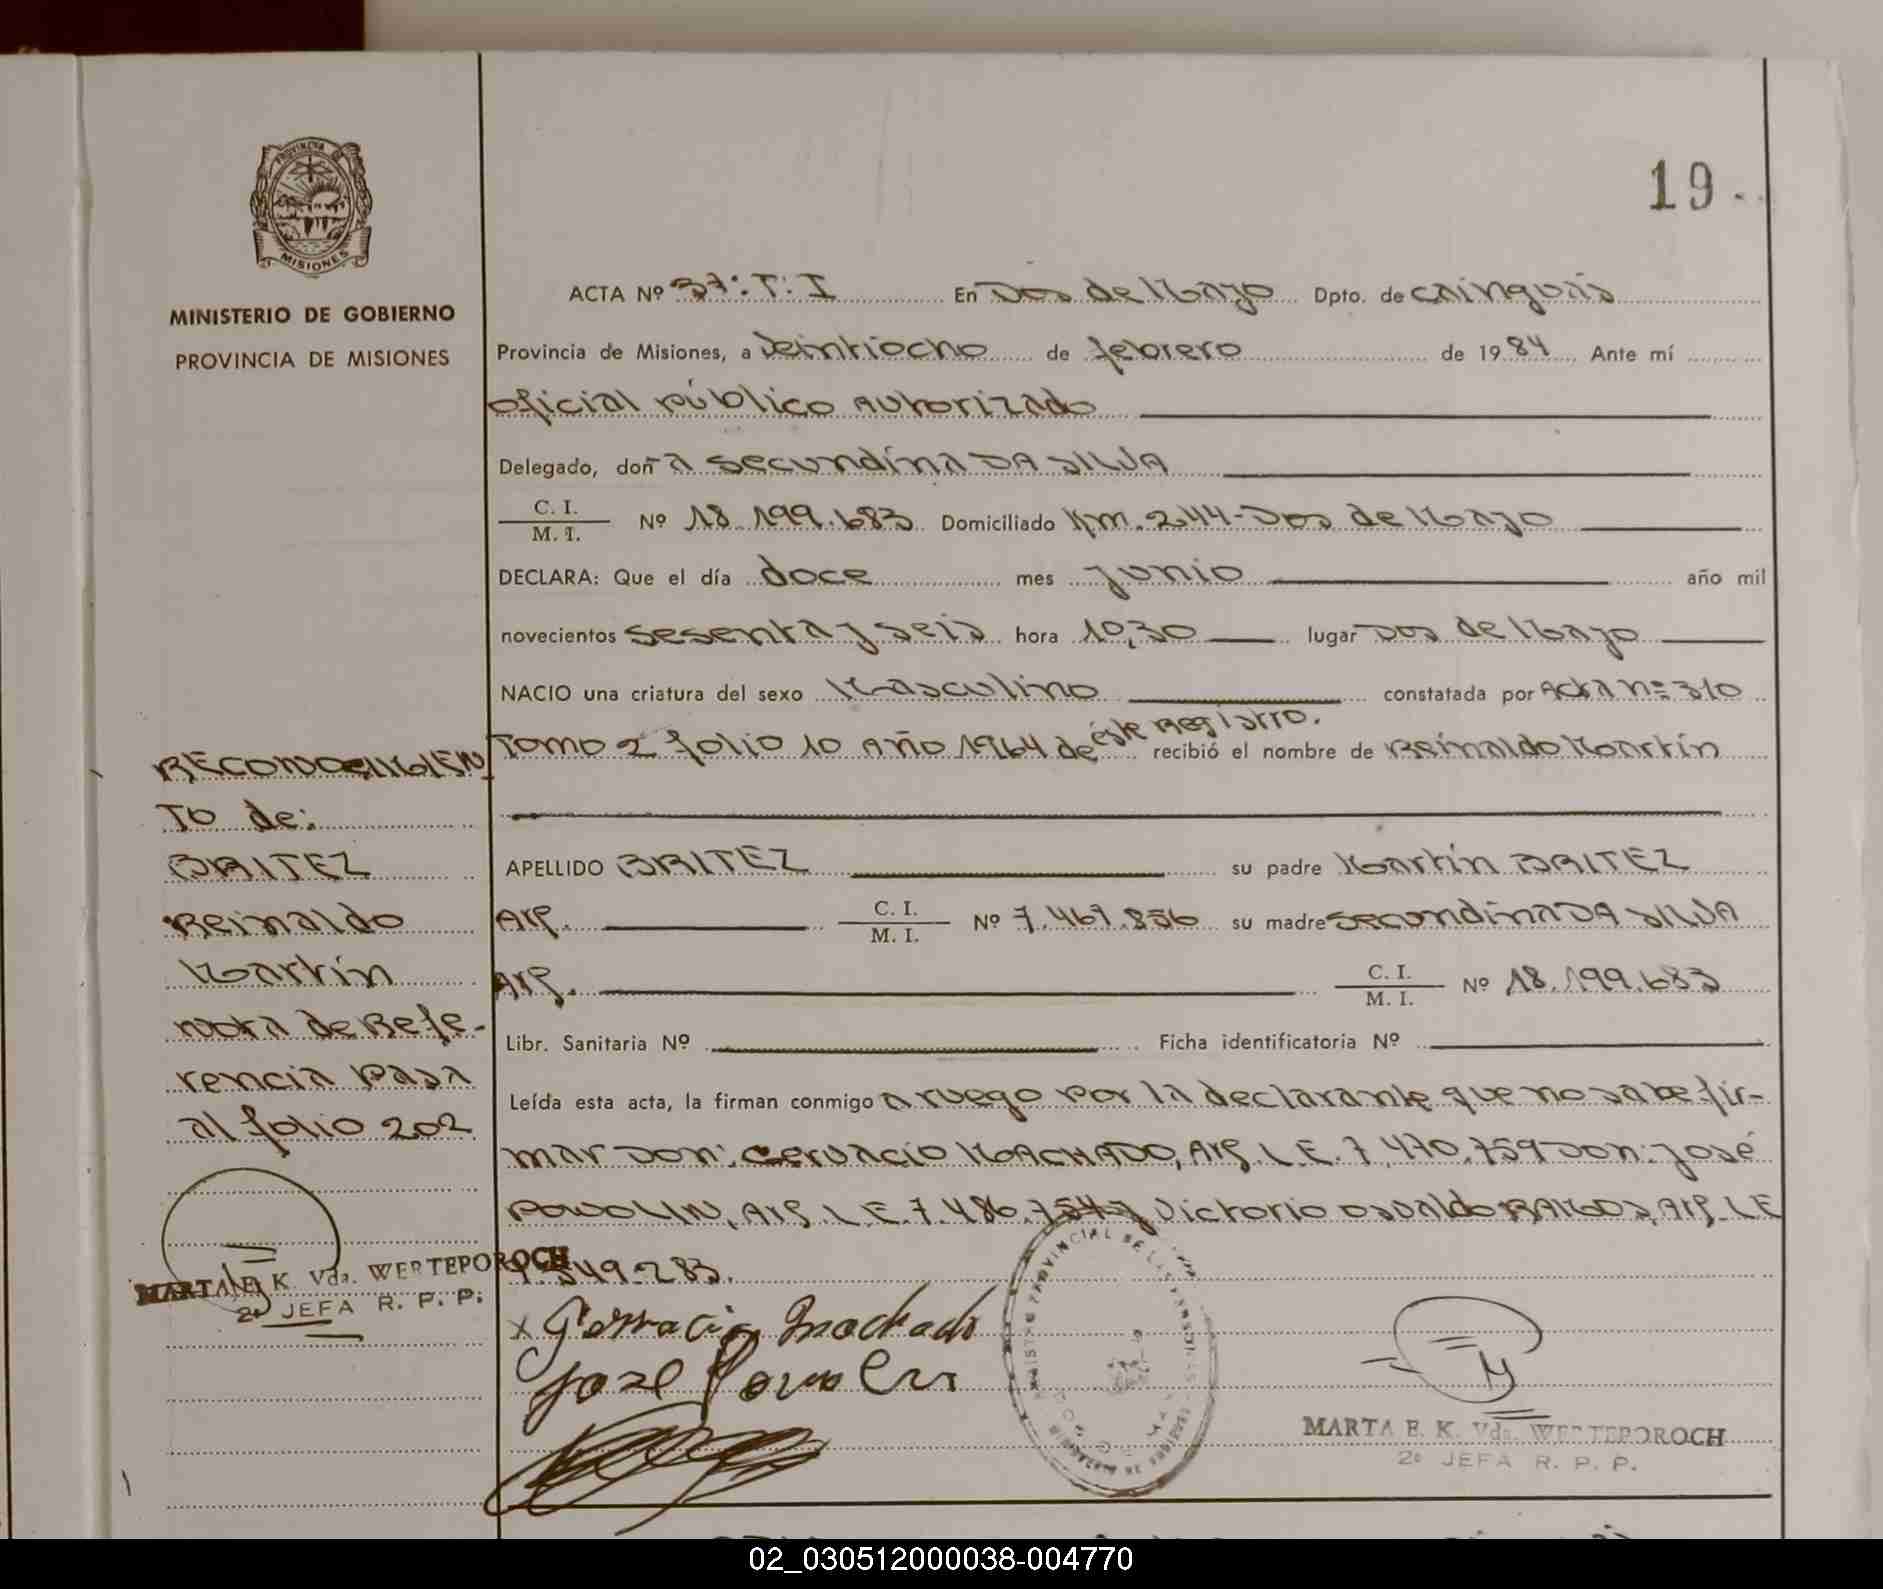 19
PROVINCIA DE
MISIONES
MINISTERIO DE GOBIERNO
PROVINCIA DE MISIONES
ACTA Nº 37: T: I En Dos de Mayo Dpto. de cainguás
Provincia de Misiones, a Veintiocho de febrero de 1984 Ante mí
oficial público Autorizado
Delegado, don a Secundina DA SILVA
C. I.
M. I. Nº 18.199.683 Domiciliado Km. 244-Dos de Mayo
DECLARA: Que el día doce mes junio año mil
novecientos sesenta y seis hora 10,30 lugar Dos de Mayo
NACIO una criatura del sexo Masculino constatada por Acta nº 310
Tomo 2 folio 10 Año 1964 de éste Registro. recibió el nombre de Reinaldo Martín
APELLIDO BRITEZ su padre Martín BRITEZ
Arg. C. I. M. I. Nº 7.467.856 su madre Secundina DA SILVA
Arg. C. I. M. I. Nº 18.199.683
Libr. Sanitaria Nº Ficha identificatoria Nº
Leída esta acta, la firman conmigo a ruego por la declarante que no sabe fir-
mar Don: Gervacio MACHADO, Arg. L.E. 7.470.759 Don: José
POVOLIN, Arg. L.E. 7.486.754 y Victorio Osvaldo RAMOS, Arg. L.E
7.549.283.
x Gervacio Machado
Jose
MARTA E. K. Vda. WERTEPOROCH
2º JEFA R. P. P.
RECONOCIMIEN
TO de:
BRITEZ
Reinaldo
Martín
nota de Refe-
rencia pasa
al folio 202
MARTA E. K. Vda. WERTEPOROCH
2º JEFA R. P. P.
02_030512000038-004770